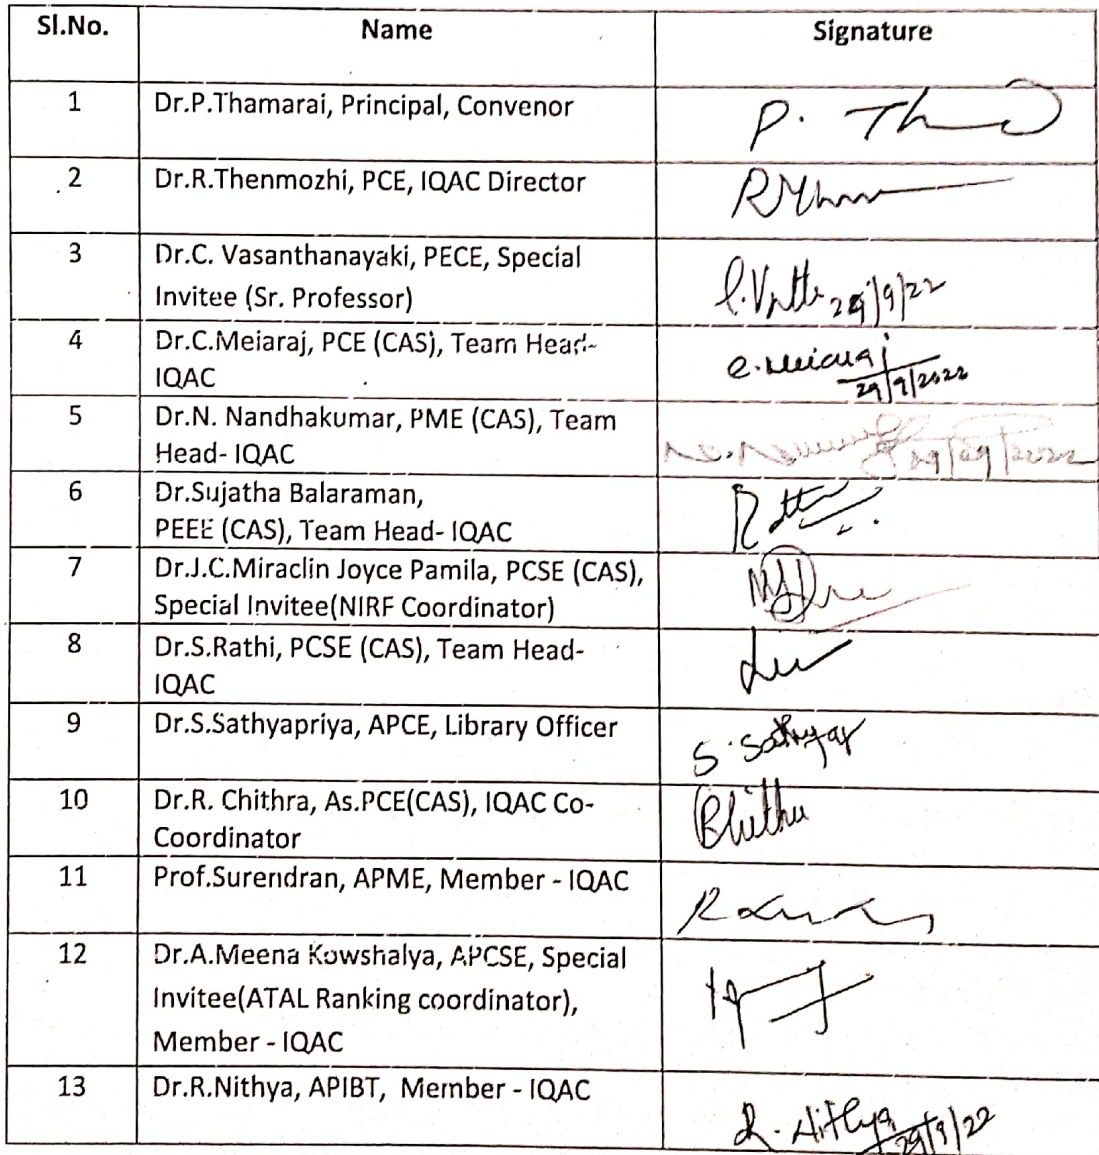 Sl.No. Name Signature
1 Dr.P.Thamarai, Principal, Convenor P. Th
2 Dr.R.Thenmozhi, PCE, IQAC Director
3 Dr.C. Vasanthanayaki, PECE, Special
Invitee (Sr. Professor) 29/9/22
4 Dr.C.Meiaraj, PCE (CAS), Team Head-
IQAC C. Meiaraj
29/9/2022
5 Dr.N. Nandhakumar, PME (CAS), Team
Head- IQAC 29/09/2022
6 Dr.Sujatha Balaraman,
PEEE (CAS), Team Head- IQAC
7 Dr.J.C.Miraclin Joyce Pamila, PCSE (CAS),
Special Invitee(NIRF Coordinator)
8 Dr.S.Rathi, PCSE (CAS), Team Head-
IQAC
9 Dr.S.Sathyapriya, APCE, Library Officer
10 Dr.R. Chithra, As.PCE(CAS), IQAC Co-
Coordinator
11 Prof.Surendran, APME, Member - IQAC
12 Dr.A.Meena Kowshalya, APCSE, Special
Invitee(ATAL Ranking coordinator),
Member - IQAC
13 Dr.R.Nithya, APIBT, Member - IQAC
R. Nithya 29/9/22